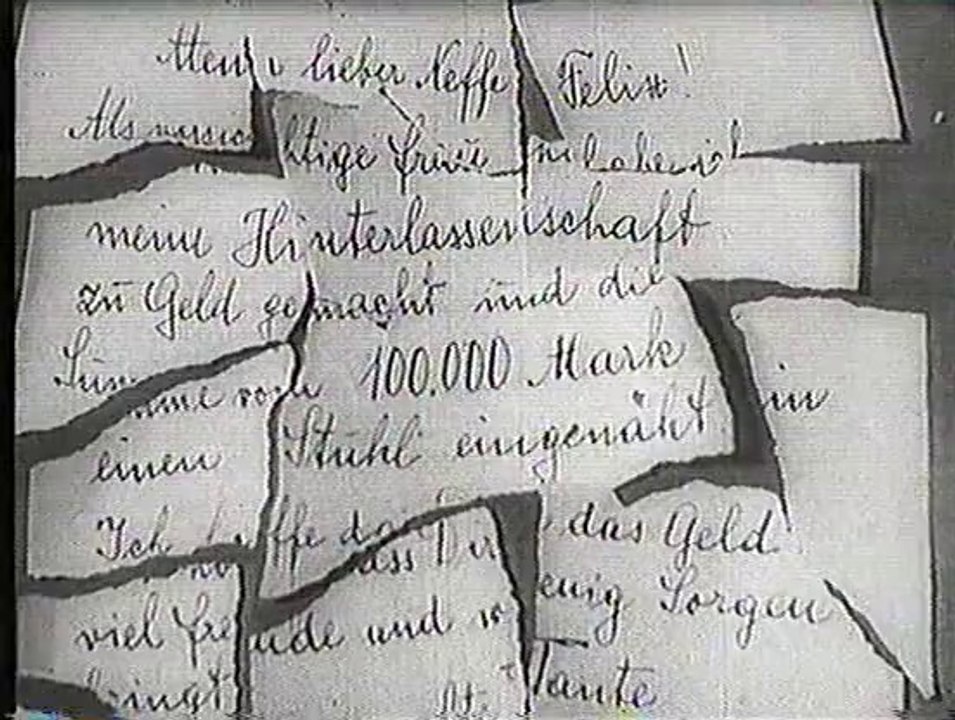 Mein lieber Neffe Felix!
Als vorsichtige Frau
meine Hinterlassenschaft
zu Geld gemacht und die
Summe von 100.000 Mark in
einen Stuhl eingenäht.
Ich hoffe dass Dir das Geld
viel Freude und wenig Sorgen
bringt
Tante